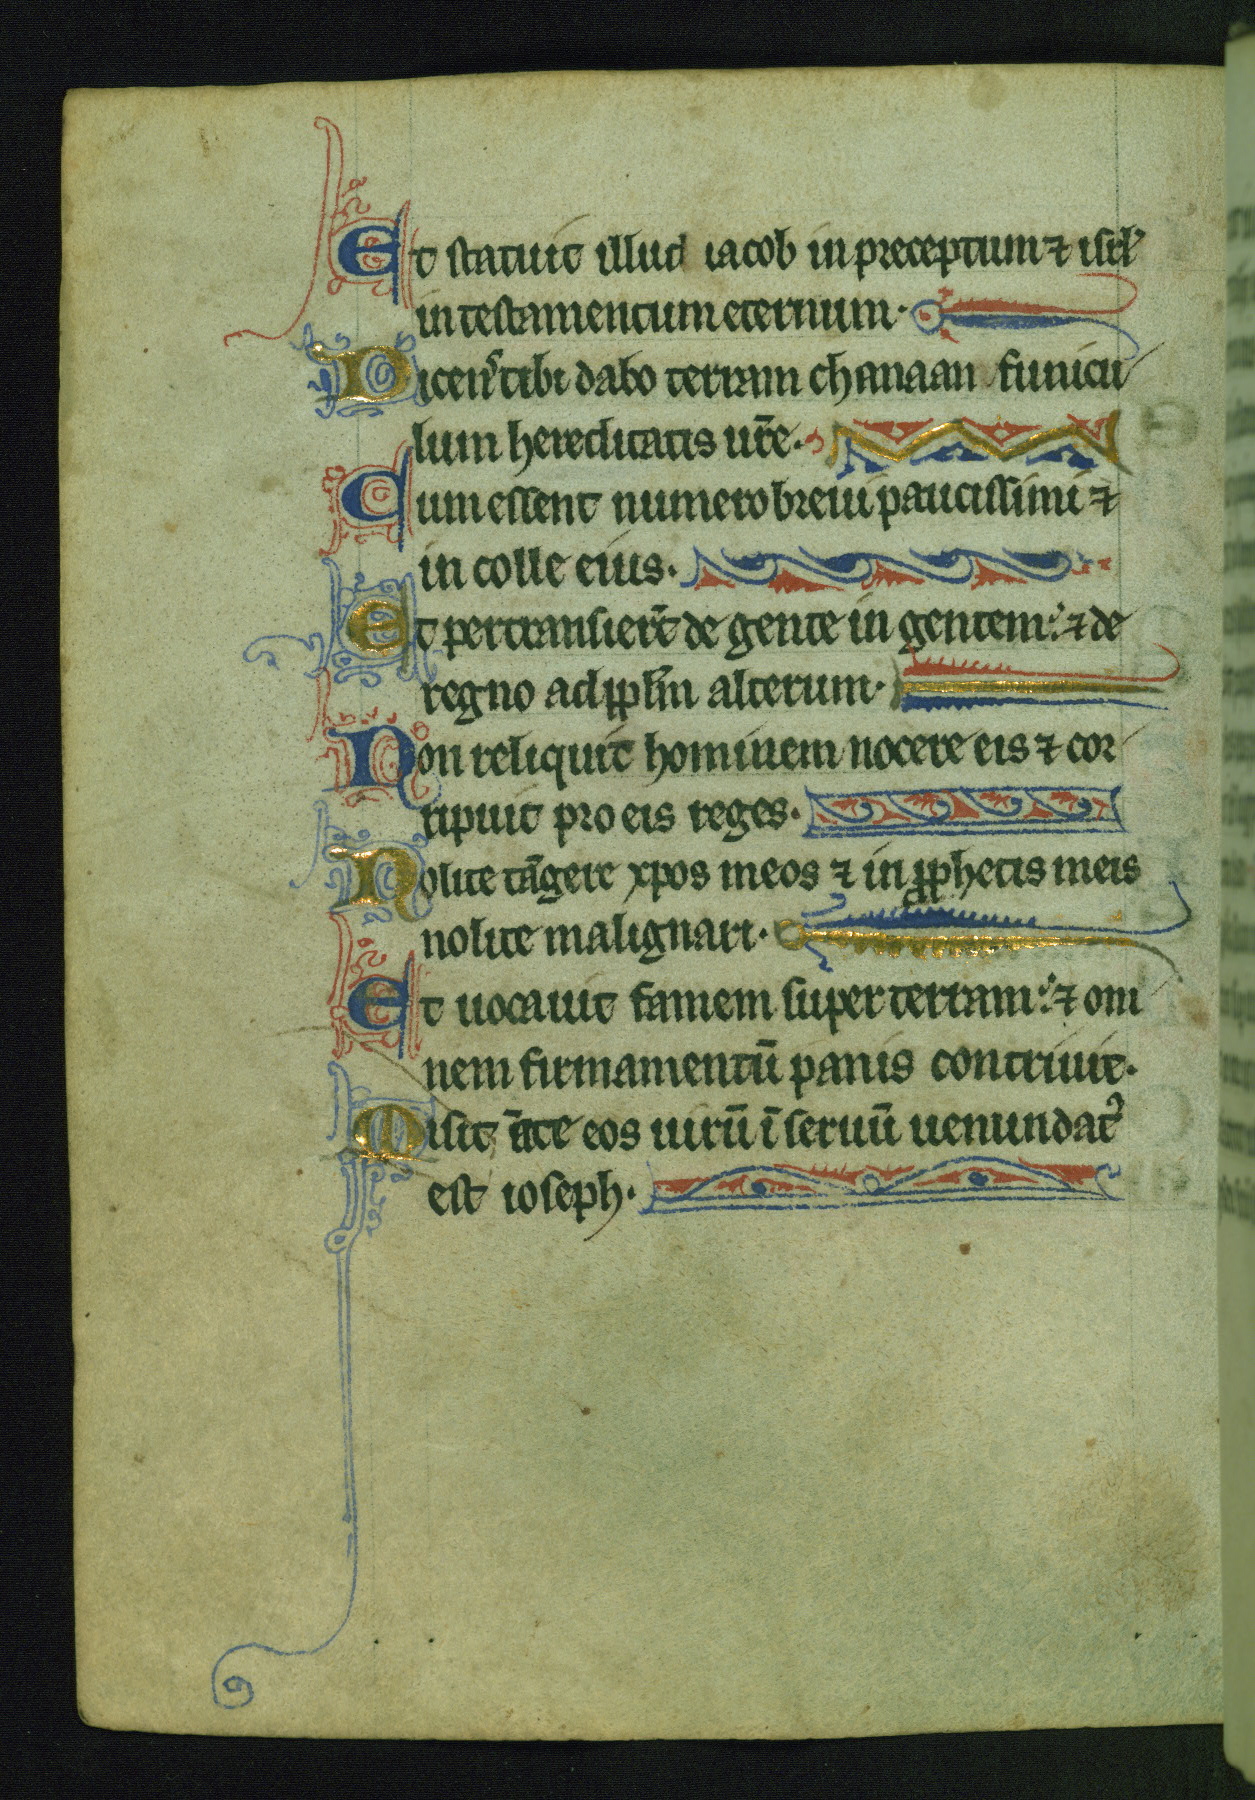 Et statuit illud iacob in preceptum ⁊ isrl'
in testamentum eternum·
Dicens tibi dabo terram chanaan funicu
lum hereditatis ur̄e·
Cum essent numero breui paucissimi ⁊
in colle eius·
Et pertransier̄t de gente in gentem: ⁊ de
regno ad pp̄lm̄ alterum·
Non reliquit hominem nocere eis ⁊ cor
ripuit pro eis reges·
Nolite tāgere xpos meos ⁊ in pp̄hetis meis
nolite malignari·
Et uocauit famem super terram: ⁊ om
nem firmamentū panis contriuit·
Misit āte eos uirū ī seruū uenundat᷒
est ioseph·